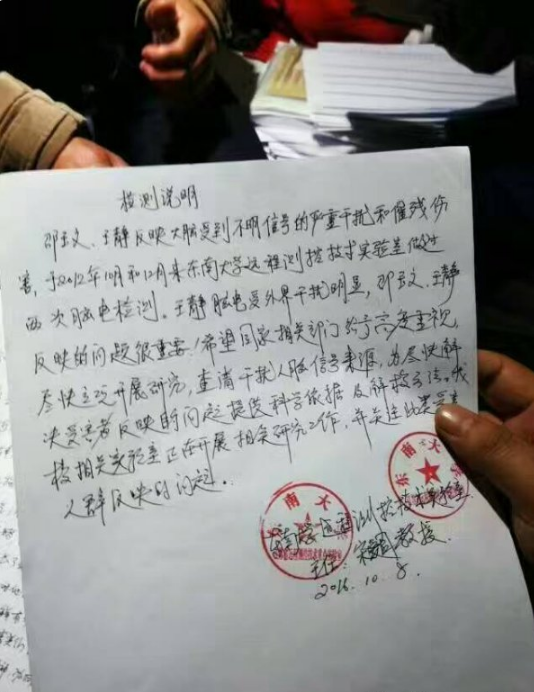 检测说明
邵玉文、王静反映大脑受到不明信号的严重干扰和催残伤
害,于2012年10月和12月来东南大学远程测控技术实验室做过
两次脑电检测。王静脑电受外界干扰明显,邵玉文、王静
反映的问题很重要!希望国家相关部门给予高度重视,
尽快立项开展研究,查清干扰人脑信号来源,为尽快解
决受害者反映的问题提供科学依据及解救方法。我
校相关实验室正在开展相关研究工作,并关注此类受害
人群反映的问题。
远程测控技术实验室
主任: 教授
2016.10.8.
东南大
南大